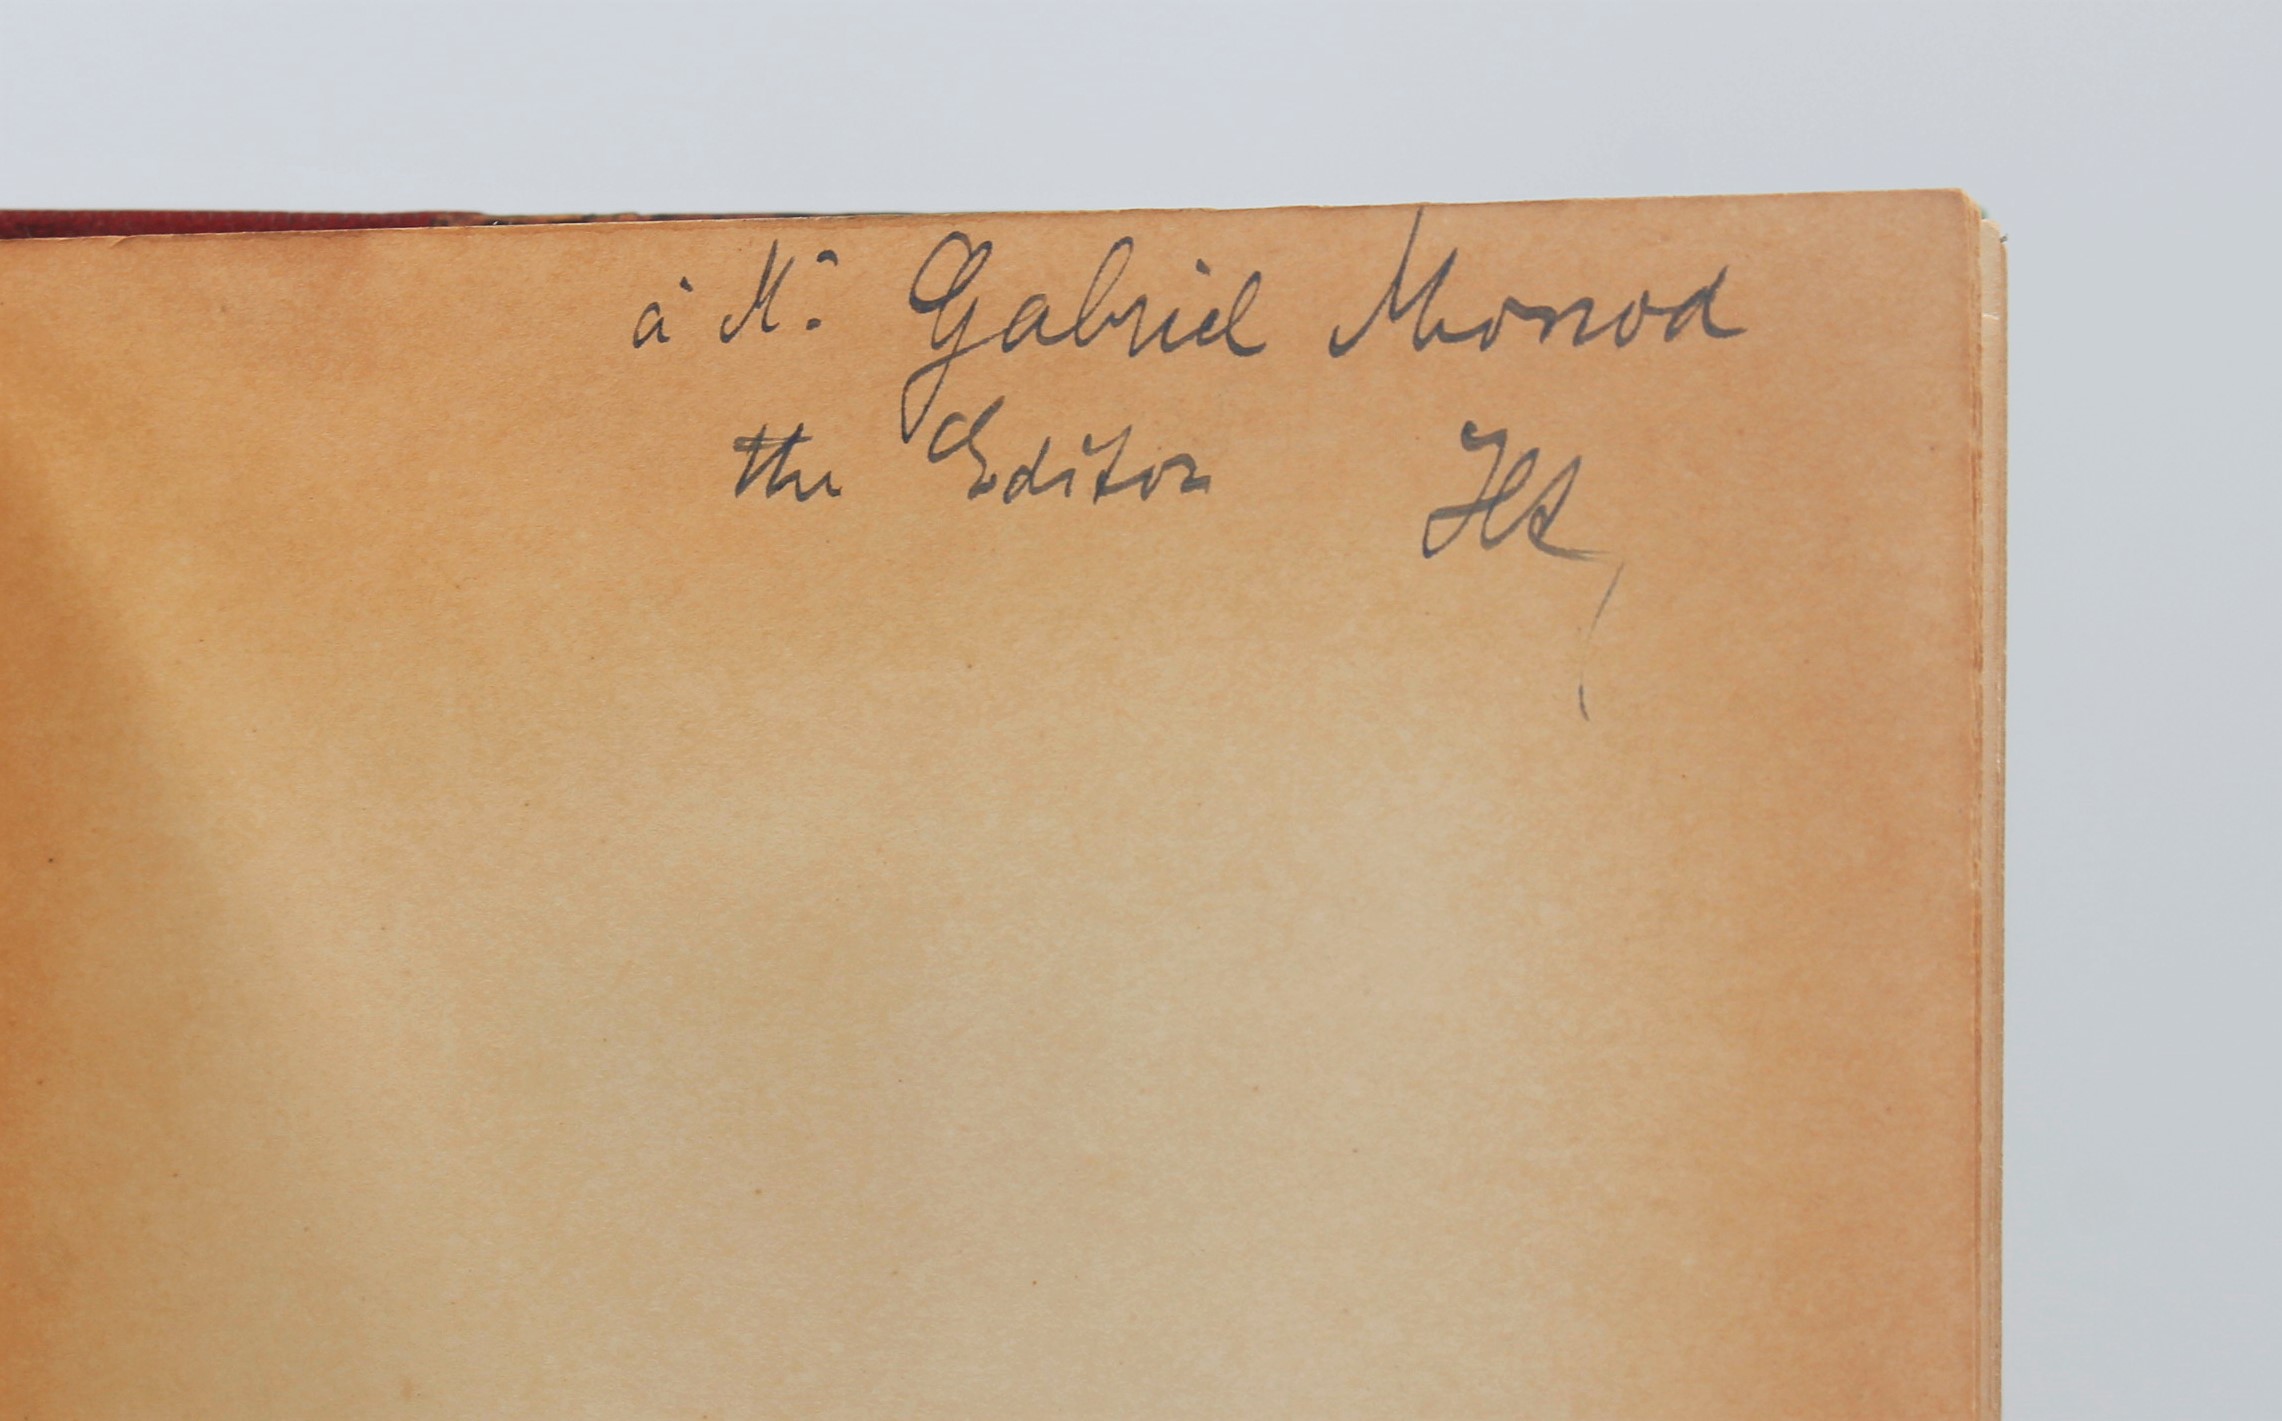 à Mr Gabriel Monod
the Editor